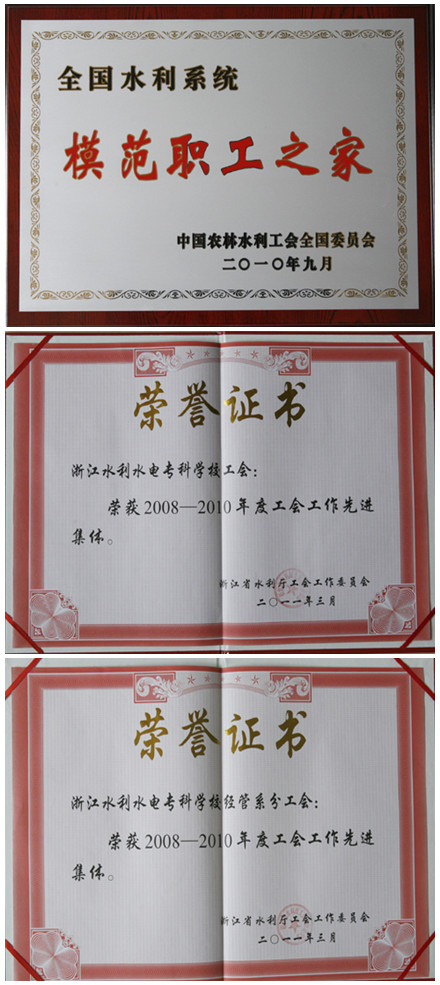 全国水利系统
模范职工之家
中国农林水利工会全国委员会
二〇一〇年九月
荣誉证书
浙江水利水电专科学校工会：
荣获2008—2010年度工会工作先进
集体。
浙江省水利厅工会工作委员会
二〇一一年三月
荣誉证书
浙江水利水电专科学校经管系分工会：
荣获2008—2010年度工会工作先进
集体。
浙江省水利厅工会工作委员会
二〇一一年三月